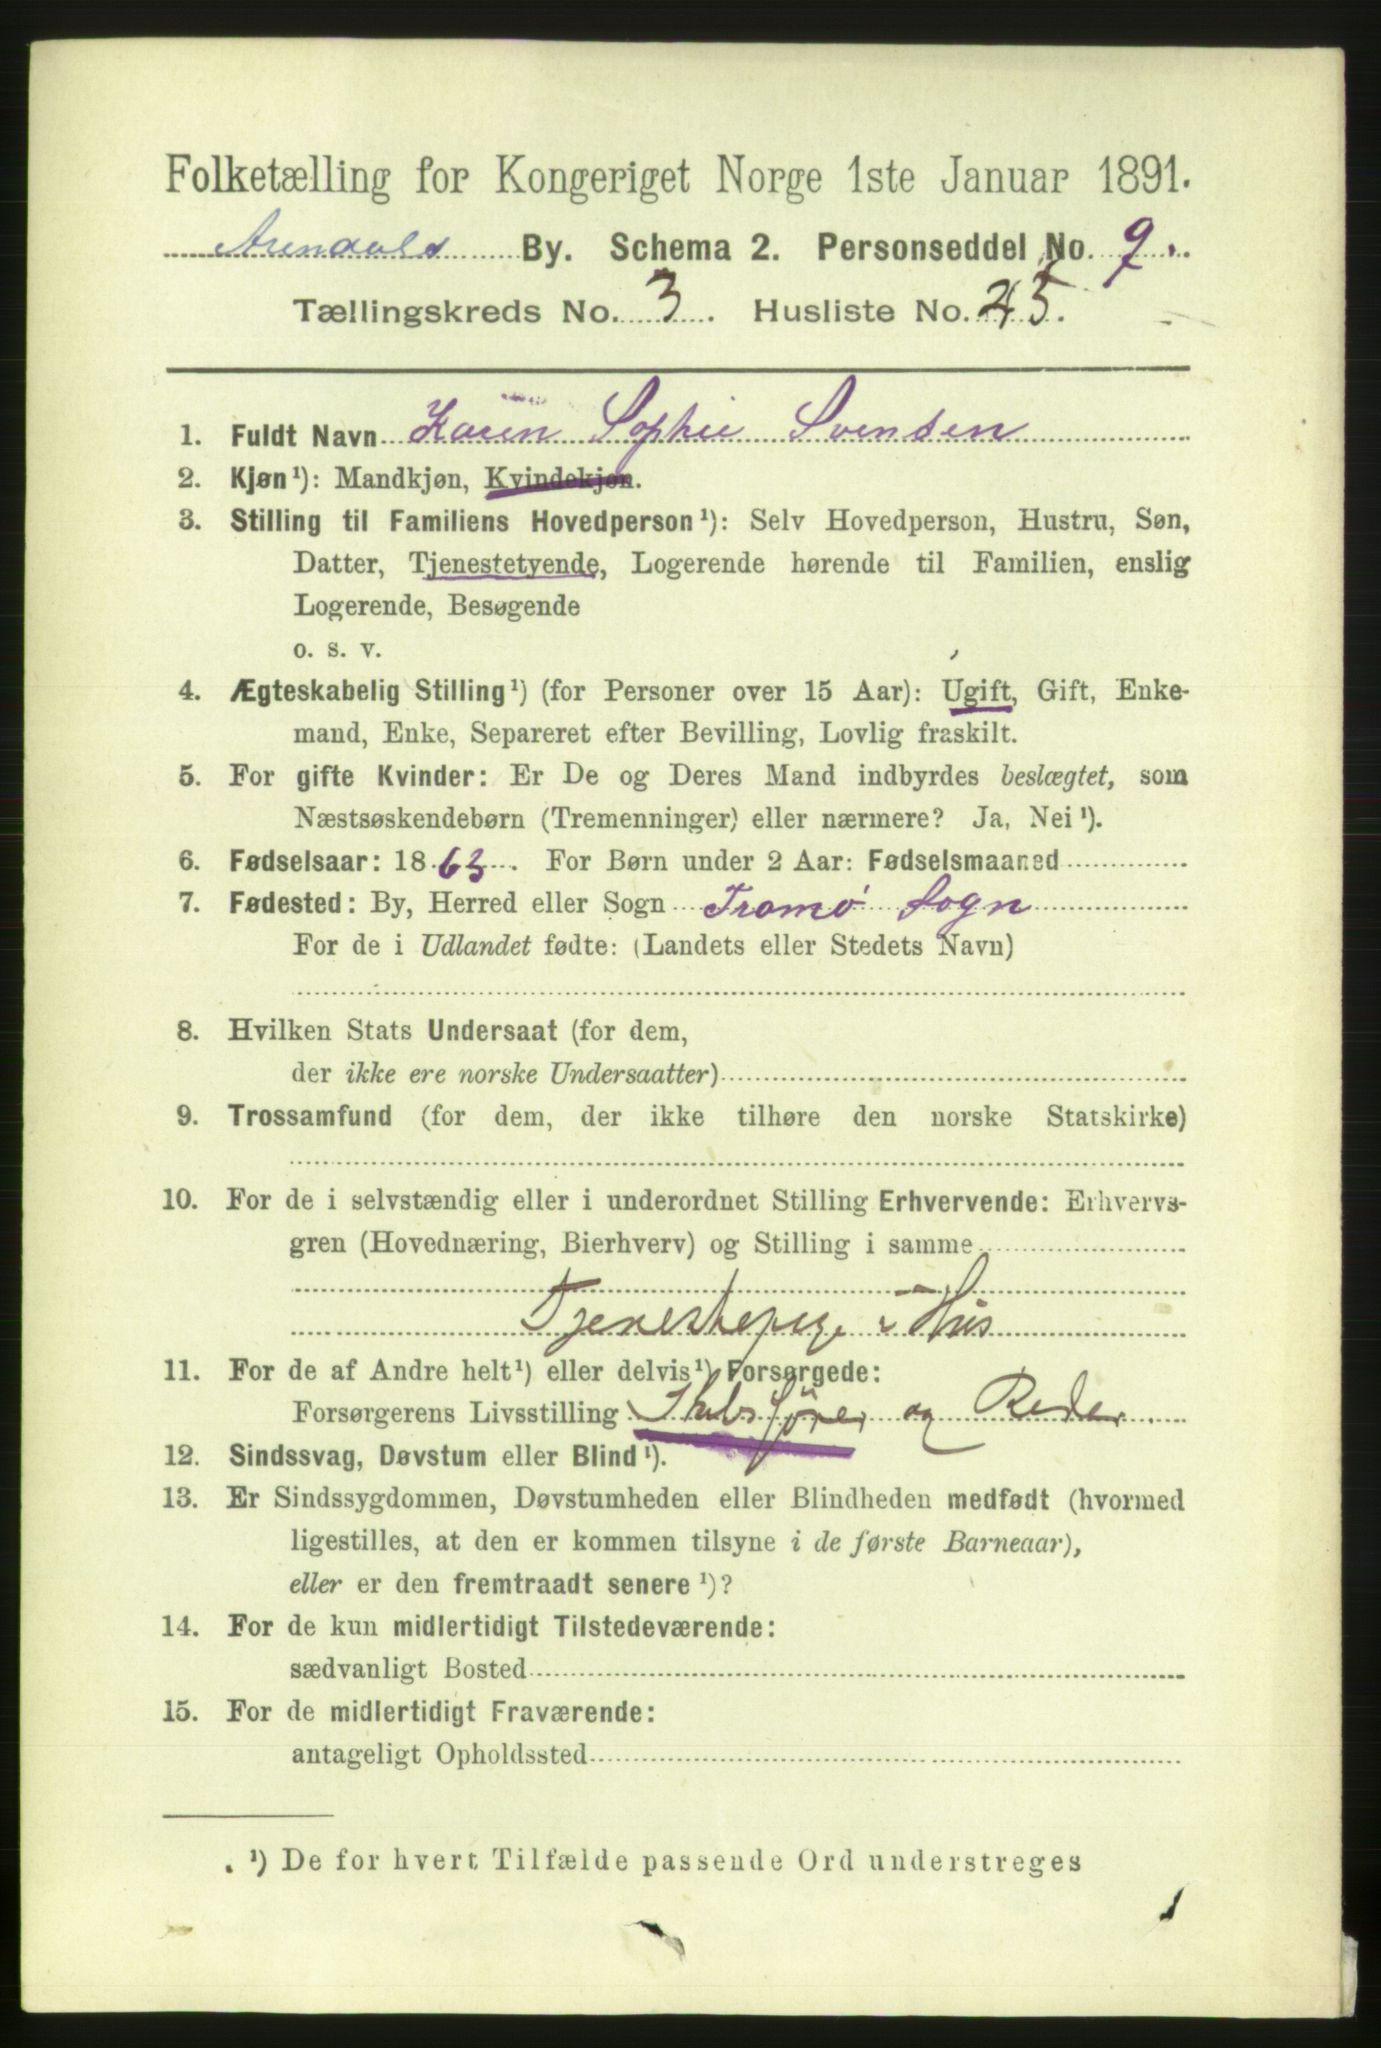 Folketælling for Kongeriget Norge 1ste Januar 1891.
Arendals By. Schema 2. Personseddel No. 9.
Tællingskreds No. 3. Husliste No. 45.
1. Fuldt Navn Karen Sophie Svensen
2. Kjøn¹): Mandkjøn, Kvindekjøn.
3. Stilling til Familiens Hovedperson¹): Selv Hovedperson, Hustru, Søn,
Datter, Tjenestetyende, Logerende hørende til Familien, enslig
Logerende, Besøgende
o. s. v.
4. Ægteskabelig Stilling¹) (for Personer over 15 Aar): Ugift, Gift, Enke-
mand, Enke, Separeret efter Bevilling, Lovlig fraskilt.
5. For gifte Kvinder: Er De og Deres Mand indbyrdes beslægtet, som
Næstsøskendebørn (Tremenninger) eller nærmere? Ja, Nei¹).
6. Fødselsaar: 1863. For Børn under 2 Aar: Fødselsmaaned
7. Fødested: By, Herred eller Sogn Tromø Sogn
For de i Udlandet fødte: (Landets eller Stedets Navn)
8. Hvilken Stats Undersaat (for dem,
der ikke ere norske Undersaatter)
9. Trossamfund (for dem, der ikke tilhøre den norske Statskirke)
10. For de i selvstændig eller i underordnet Stilling Erhvervende: Erhvervs-
gren (Hovednæring, Bierhverv) og Stilling i samme
Tjenestepige i Hus
11. For de af Andre helt¹) eller delvis¹) Forsørgede:
Forsørgerens Livsstilling Skibsfører og Reder.
12. Sindssvag, Døvstum eller Blind¹).
13. Er Sindssygdommen, Døvstumheden eller Blindheden medfødt (hvormed
ligestilles, at den er kommen tilsyne i de første Barneaar),
eller er den fremtraadt senere¹)?
14. For de kun midlertidigt Tilstedeværende:
sædvanligt Bosted
15. For de midlertidigt Fraværende:
antageligt Opholdssted
¹) De for hvert Tilfælde passende Ord understreges